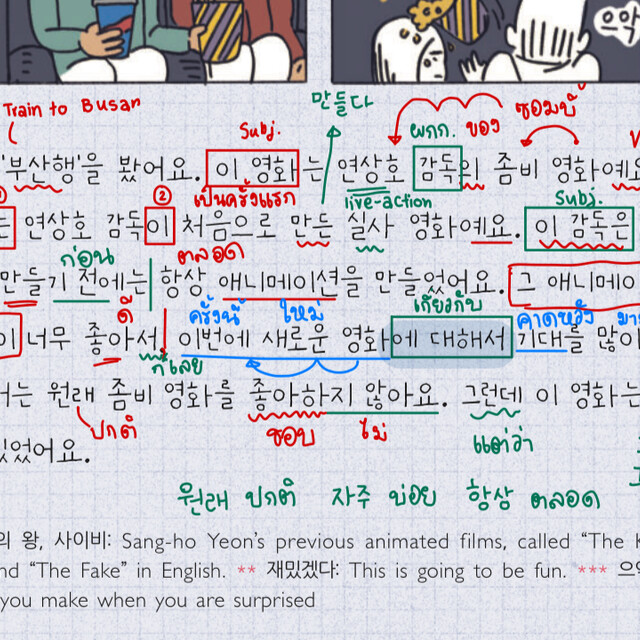 으악
만들다
Train to Busan
Subj.
ผกก. ของ ซอมบี้
'부산행'을 봤어요. 이 영화는 연상호 감독의 좀비 영화예요
② เป็นครั้งแรก live-action Subj.
는 연상호 감독이 처음으로 만든 실사 영화예요. 이 감독은
ก่อน ตลอด
만들기 전에는 항상 애니메이션을 만들었어요. 그 애니메이
ดี ครั้งนี้ ใหม่ เกี่ยวกับ คาดหวัง
이 너무 좋아서 이번에 새로운 영화에 대해서 기대를 많이
ก็เลย
는 원래 좀비 영화를 좋아하지 않아요. 그런데 이 영화는
ปกติ ชอบ ไม่ แต่ว่า
있었어요.
원래 ปกติ 자주 บ่อย 항상 ตลอด
의 왕, 사이비: Sang-ho Yeon's previous animated films, called "The K
nd "The Fake" in English. ** 재밌겠다: This is going to be fun. *** 으악
you make when you are surprised